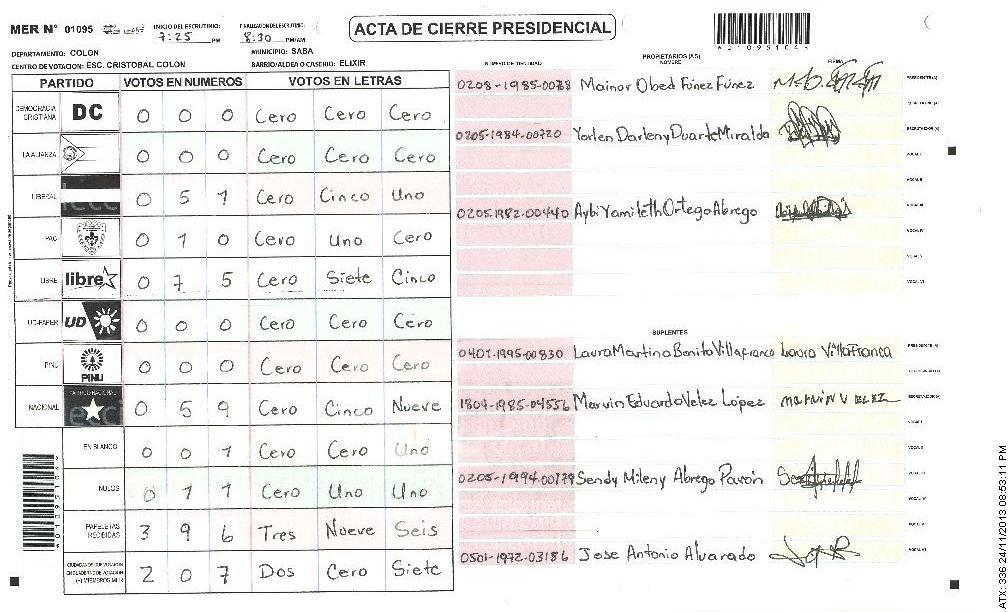 MER N° 01095
INICIO DEL ESCRUTINIO: 7:25 PM
FINALIZACION DEL ESCRUTINIO: 8:30 PM/AM
ACTA DE CIERRE PRESIDENCIAL
DEPARTAMENTO: COLON
MUNICIPIO: SABA
CENTRO DE VOTACION: ESC. CRISTOBAL COLON
BARRIO/ALDEA O CASERIO: ELIXIR
PARTIDO VOTOS EN NUMEROS VOTOS EN LETRAS
DEMOCRACIA CRISTIANA DC 0 0 0 Cero Cero Cero
LA ALIANZA 0 0 0 Cero Cero Cero
LIBERAL 0 5 1 Cero Cinco Uno
PAC 0 1 0 Cero Uno Cero
LIBRE libre 0 7 5 Cero Siete Cinco
UD-FAPER UD 0 0 0 Cero Cero Cero
PINU PINU 0 0 0 Cero Cero Cero
NACIONAL 0 5 9 Cero Cinco Nueve
EN BLANCO 0 0 1 Cero Cero Uno
NULOS 0 1 1 Cero Uno Uno
PAPELETAS RECIBIDAS 3 9 6 Tres Nueve Seis
2 0 7 Dos Cero Siete
NUMERO DE IDENTIDAD
PROPIETARIOS (AS)
NOMBRE
FIRMA
Mainor Obed Fúnez Fúnez PRESIDENTE(A)
0205-1984-00720 Yorlen Darleny Duarte Miralda ESCRUTADOR (A)
0205-1982-00440 Aybi Yamileth Ortego Abrego
SUPLENTES
0401-1995-00830 Laura Martina Bonito Villafranco Laura Villafranca PRESIDENTE(A)
1807-1985-04556 Marvin Eduardo Velez López MARVIN VELEZ
Sendy Mileny Abrego Pavón
0501-1972-03186 Jose Antonio Alvarado
ATX: 336 24/11/2013 08:53:11 PM